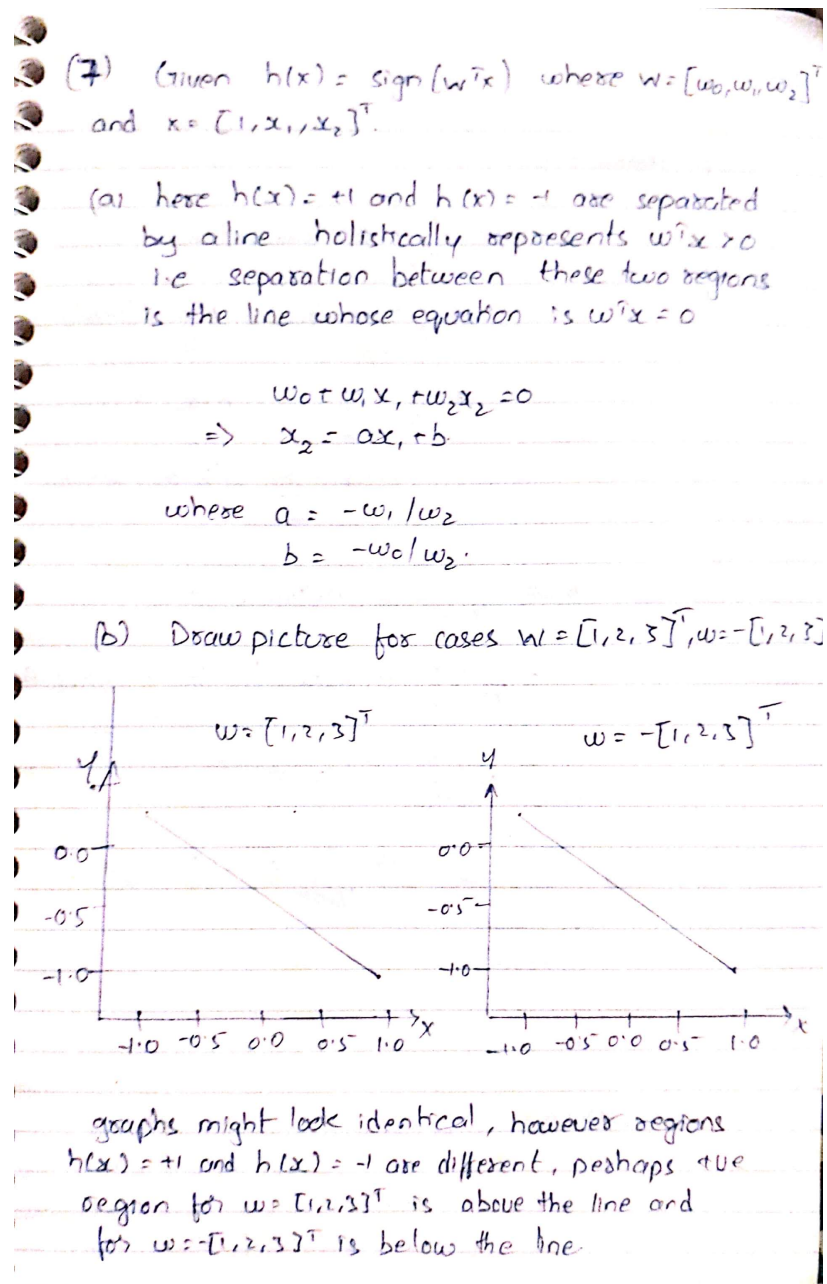 (7) Given h(x) = sign(wᵀx) where w = [w₀, w₁, w₂]ᵀ
and x = [1, x₁, x₂]ᵀ.
(a) here h(x) = +1 and h(x) = -1 are separated
by a line holistically represents wᵀx > 0
i.e separation between these two regions
is the line whose equation is wᵀx = 0
w₀ + w₁x₁ + w₂x₂ = 0
=> x₂ = ax₁ + b.
where a = -w₁/w₂
b = -w₀/w₂.
(b) Draw picture for cases w = [1, 2, 3]ᵀ, w = -[1, 2, 3]
w = [1, 2, 3]ᵀ w = -[1, 2, 3]ᵀ
y y
0.0 0.0
-0.5 -0.5
-1.0 -1.0
-1.0 -0.5 0.0 0.5 1.0 x -1.0 -0.5 0.0 0.5 1.0 x
graphs might look identical, however regions
h(x) = +1 and h(x) = -1 are different, perhaps +ve
region for w = [1, 2, 3]ᵀ is above the line and
for w = -[1, 2, 3]ᵀ is below the line